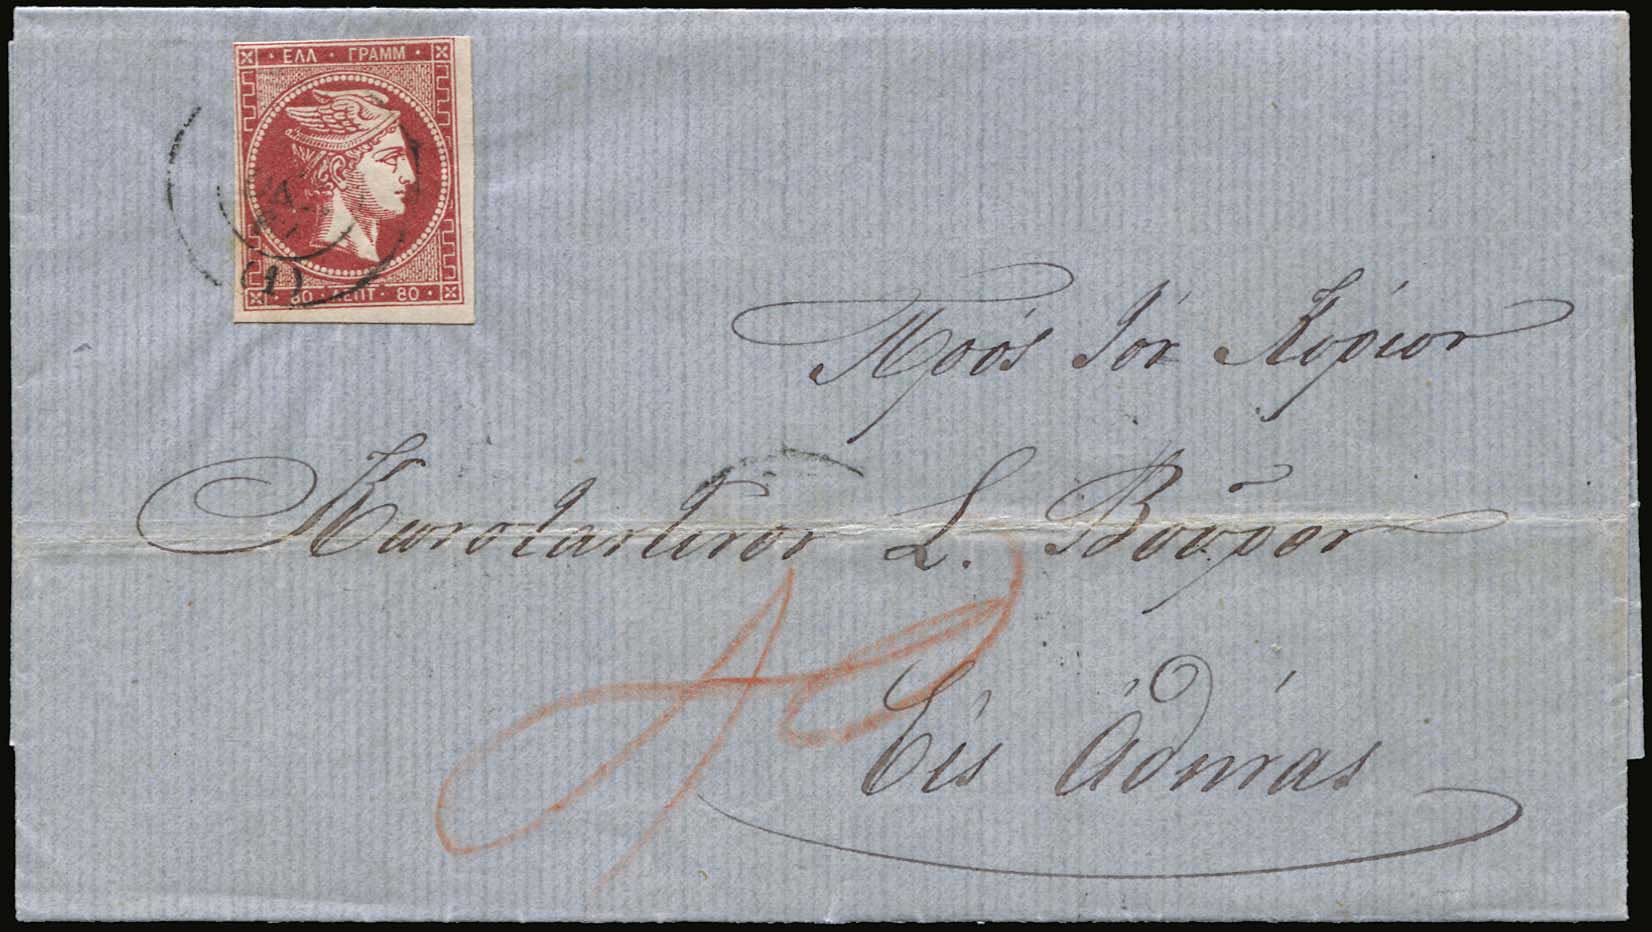 ΕΛΛ · ΓΡΑΜΜ
80 · ΛΕΠΤ · 80
(1)
Πρός Τόν Κύριον
Κωνσταντίνον Λ. Βοῦρον
Εἰς Ἀθήνας